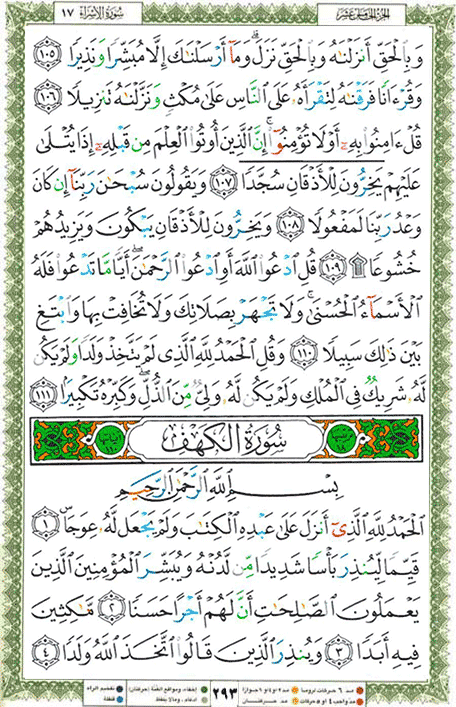 الجزء الخامس عشر
سورة الإسراء ١٧
وَبِٱلْحَقِّ أَنزَلْنَٰهُ وَبِٱلْحَقِّ نَزَلَ ۗ وَمَآ أَرْسَلْنَٰكَ إِلَّا مُبَشِّرًا وَنَذِيرًا ١٠٥
وَقُرْءَانًا فَرَقْنَٰهُ لِتَقْرَأَهُۥ عَلَى ٱلنَّاسِ عَلَىٰ مُكْثٍ وَنَزَّلْنَٰهُ تَنزِيلًا ١٠٦
قُلْ ءَامِنُوا۟ بِهِۦٓ أَوْ لَا تُؤْمِنُوٓا۟ ۚ إِنَّ ٱلَّذِينَ أُوتُوا۟ ٱلْعِلْمَ مِن قَبْلِهِۦٓ إِذَا يُتْلَىٰ
عَلَيْهِمْ يَخِرُّونَ لِلْأَذْقَانِ سُجَّدًا ١٠٧ وَيَقُولُونَ سُبْحَٰنَ رَبِّنَآ إِن كَانَ
وَعْدُ رَبِّنَا لَمَفْعُولًا ١٠٨ وَيَخِرُّونَ لِلْأَذْقَانِ يَبْكُونَ وَيَزِيدُهُمْ
خُشُوعًا ۩ ١٠٩ قُلِ ٱدْعُوا۟ ٱللَّهَ أَوِ ٱدْعُوا۟ ٱلرَّحْمَٰنَ ۖ أَيًّا مَّا تَدْعُوا۟ فَلَهُ
ٱلْأَسْمَآءُ ٱلْحُسْنَىٰ ۚ وَلَا تَجْهَرْ بِصَلَاتِكَ وَلَا تُخَافِتْ بِهَا وَٱبْتَغِ
بَيْنَ ذَٰلِكَ سَبِيلًا ١١٠ وَقُلِ ٱلْحَمْدُ لِلَّهِ ٱلَّذِى لَمْ يَتَّخِذْ وَلَدًا وَلَمْ يَكُن
لَّهُۥ شَرِيكٌ فِى ٱلْمُلْكِ وَلَمْ يَكُن لَّهُۥ وَلِىٌّ مِّنَ ٱلذُّلِّ ۖ وَكَبِّرْهُ تَكْبِيرًۢا ١١١
سُورَةُ الكَهْفِ
بِسْمِ ٱللَّهِ ٱلرَّحْمَٰنِ ٱلرَّحِيمِ
ٱلْحَمْدُ لِلَّهِ ٱلَّذِىٓ أَنزَلَ عَلَىٰ عَبْدِهِ ٱلْكِتَٰبَ وَلَمْ يَجْعَل لَّهُۥ عِوَجَا ۜ ١
قَيِّمًا لِّيُنذِرَ بَأْسًا شَدِيدًا مِّن لَّدُنْهُ وَيُبَشِّرَ ٱلْمُؤْمِنِينَ ٱلَّذِينَ
يَعْمَلُونَ ٱلصَّٰلِحَٰتِ أَنَّ لَهُمْ أَجْرًا حَسَنًا ٢ مَّٰكِثِينَ
فِيهِ أَبَدًا ٣ وَيُنذِرَ ٱلَّذِينَ قَالُوا۟ ٱتَّخَذَ ٱللَّهُ وَلَدًا ٤
٢٩٣